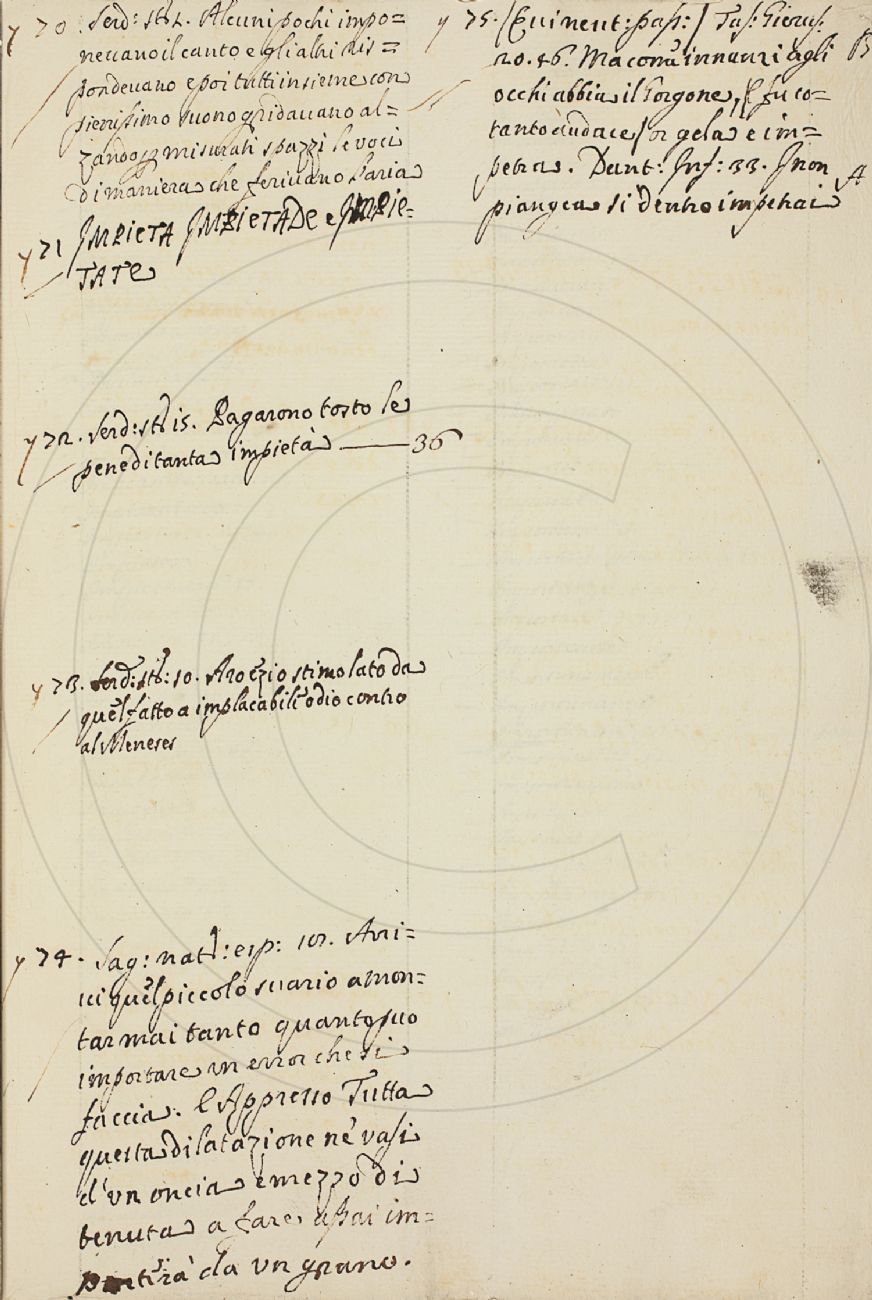 y 70. Serd: st: 2. Alcuni pochi impo=
nevano il canto e gli altri ris=
pondevano e poi tutti insieme con
pienissimo suono gridavano al=
zando misurati spazzi le voci
di maniera che ferivano l'aria
y 71 IMPIETA IMPIETADE e IMPIE=
TATE
y 72. Serd: st: 15. Pagarono tosto le
pene di tanta impietà —— 36
y 73. Serd: st: 10. stimolato da
quel fatto a implacabili odio contro
al Meneses
y 74. Sag: nat: esp: 107. Arri=
vi quel piccolo svario a mon=
tar mai tanto quanto può
importare un error che si
faccia. E Appresso Tutta
questa dilatazione ne vasi
d'un oncia e mezzo di
tenuta a fare assai im=
da un grano.
y 75. / Tas: Gierus:
20. 56. Ma com' innanzi agli B
occhi abbia il Gorgone, E fu co=
tanto audace / or gela e im=
petra. Dant: Inf: 33. I non A
piangea sì dentro impetrai